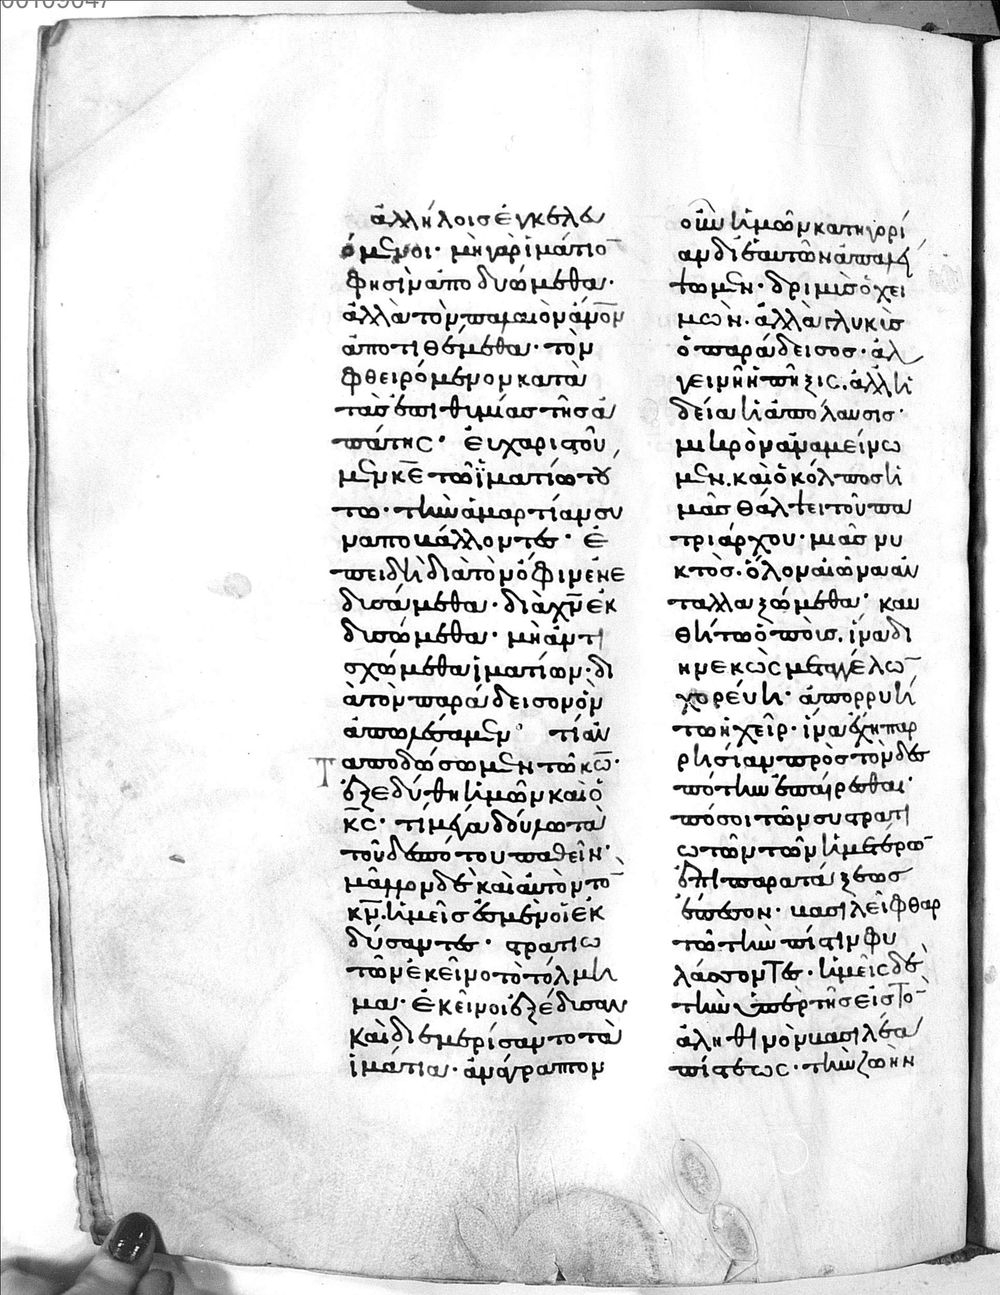 ἀλλήλοισ ἐγκελευ
όμενοι· μὴ γὰρ ἱμάτιο̅
φησὶν ἀποδυώμεθα·
ἀλλὰ τὸν παλαιὸν ἄνο̅ν
ἀποτιθέμεθα· τὸν
φθειρόμενον κατὰ
τὰσ ἐπιθυμίασ τῆσ ἀ
πάτης· εὐχαριστοῦ
μέν σοι κ̅ε τῶ ἱματίω τού
τω· τὴν ἁμαρτίαν συ
ναποβάλλοντεσ· ἐ
πειδὴ διὰ τὸν ὄφιν ἐνε
δυσάμεθα· διὰ χ̅ν ἐκ
δυσώμεθα· μὴ ἀντι
σχώμεθα ἱματίων· δι
ὰ τὸν παράδεισον ὃν
ἀπωλέσαμεν· τί ἀν
ταποδώσωμεν τῶ κ̅ω·
ἐξεδύθη ἡμῶν καὶ ὁ
κ̅ς· τί μέγα δούλω τὰ
τοῦ δεσπότου παθεῖν·
μᾶλλον δὲ καὶ αὐτὸν το̅
κ̅ν ἡμεῖσ ἐσμὲν οἱ ἐκ
δύσαντεσ· στρατιω
τῶν ἐκεῖνο τὸ τόλμη
μα· ἐκεῖνοι ἐξέδυσαν
καὶ διεμερίσαντο τὰ
ἱμάτια· ἀνάγραπτον
οὖν ἡμῶν κατηγορί
αν δι' ἑαυτῶν ἀπαλεί
ψωμεν· δριμὺσ ὁ χει
μών· ἀλλὰ γλυκὺσ
ὁ παράδεισοσ· ἀλ
γεινὴ ἡ πῆξις· ἀλλ' ἡ
δεῖα ἡ ἀπόλαυσισ·
μικρὸν ἀναμείνω
μεν· καὶ ὁ κόλποσ ἡ
μᾶσ θάλψει τοῦ πα
τριάρχου· μιᾶσ νυ
κτὸσ· ὅλον αἰῶνα ἀν
ταλλαξώμεθα· καυ
θήτω ὁ ποὺσ· ἵνα δι
ηνεκῶς μετ' ἀγγέλω̅
χορεύη· ἀπορρυή
τω ἡ χεὶρ· ἵνα ἔχη παρ
ρησίαν πρὸσ τὸν δεσ
πότην ἐπαίρεσθαι·
πόσοι τῶν στρατι
ωτῶν τῶν ἡμετέρω̅
ἐπὶ παρατάξεωσ
ἔπεσον· βασιλεῖ φθαρ
τῶ τὴν πίστιν φυ
λάσσοντεσ· ἡμεῖς δὲ
τὴν ὑπὲρ τῆσ εἰσ το̅
ἀληθινὸν βασιλέα
πίστεως· τὴν ζωὴν